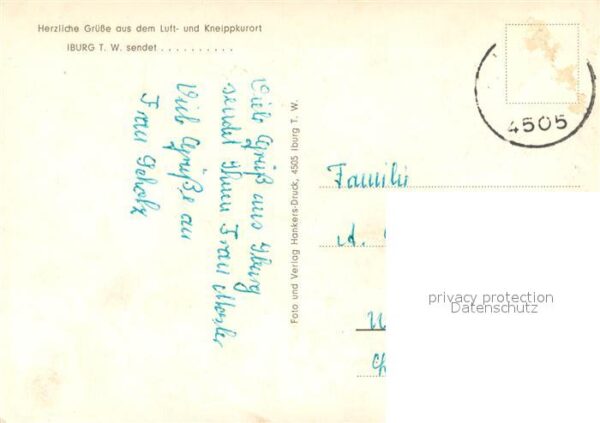 Herzliche Grüße aus dem Luft- und Kneippkurort
IBURG T. W. sendet . . . . . . . . . .
Viele Grüße aus Iburg
sendet Ihnen Frau
Viele Grüße an
Frau Scholz
Foto und Verlag Hankers-Druck, 4505 Iburg T. W.
4505
Familie
A.
privacy protection
Datenschutz